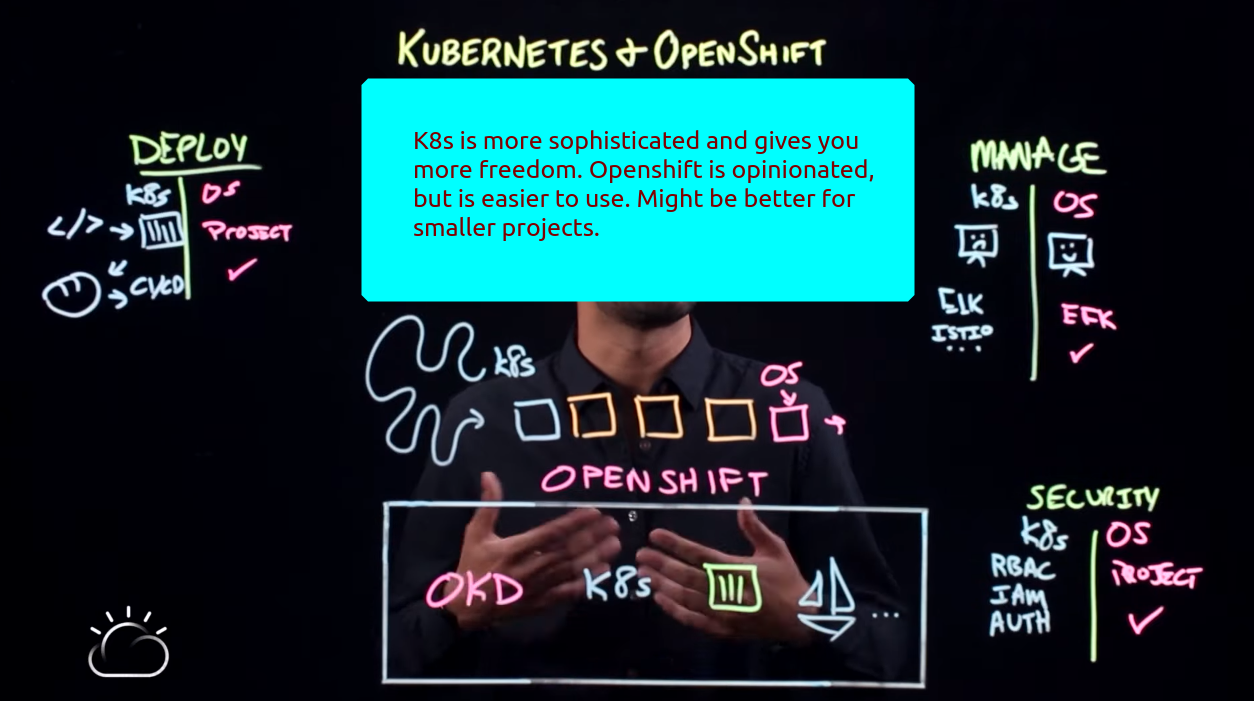 KUBERNETES & OPENSHIFT
K8s is more sophisticated and gives you
more freedom. Openshift is opinionated,
but is easier to use. Might be better for
smaller projects.
DEPLOY
K8s OS
</> → PROJECT
CI/CD ✓
MANAGE
K8s OS
ELK EFK
ISTIO ✓
...
K8s
OS
OPENSHIFT
OKD K8s ...
SECURITY
K8s OS
RBAC PROJECT
IAM
AUTH ✓